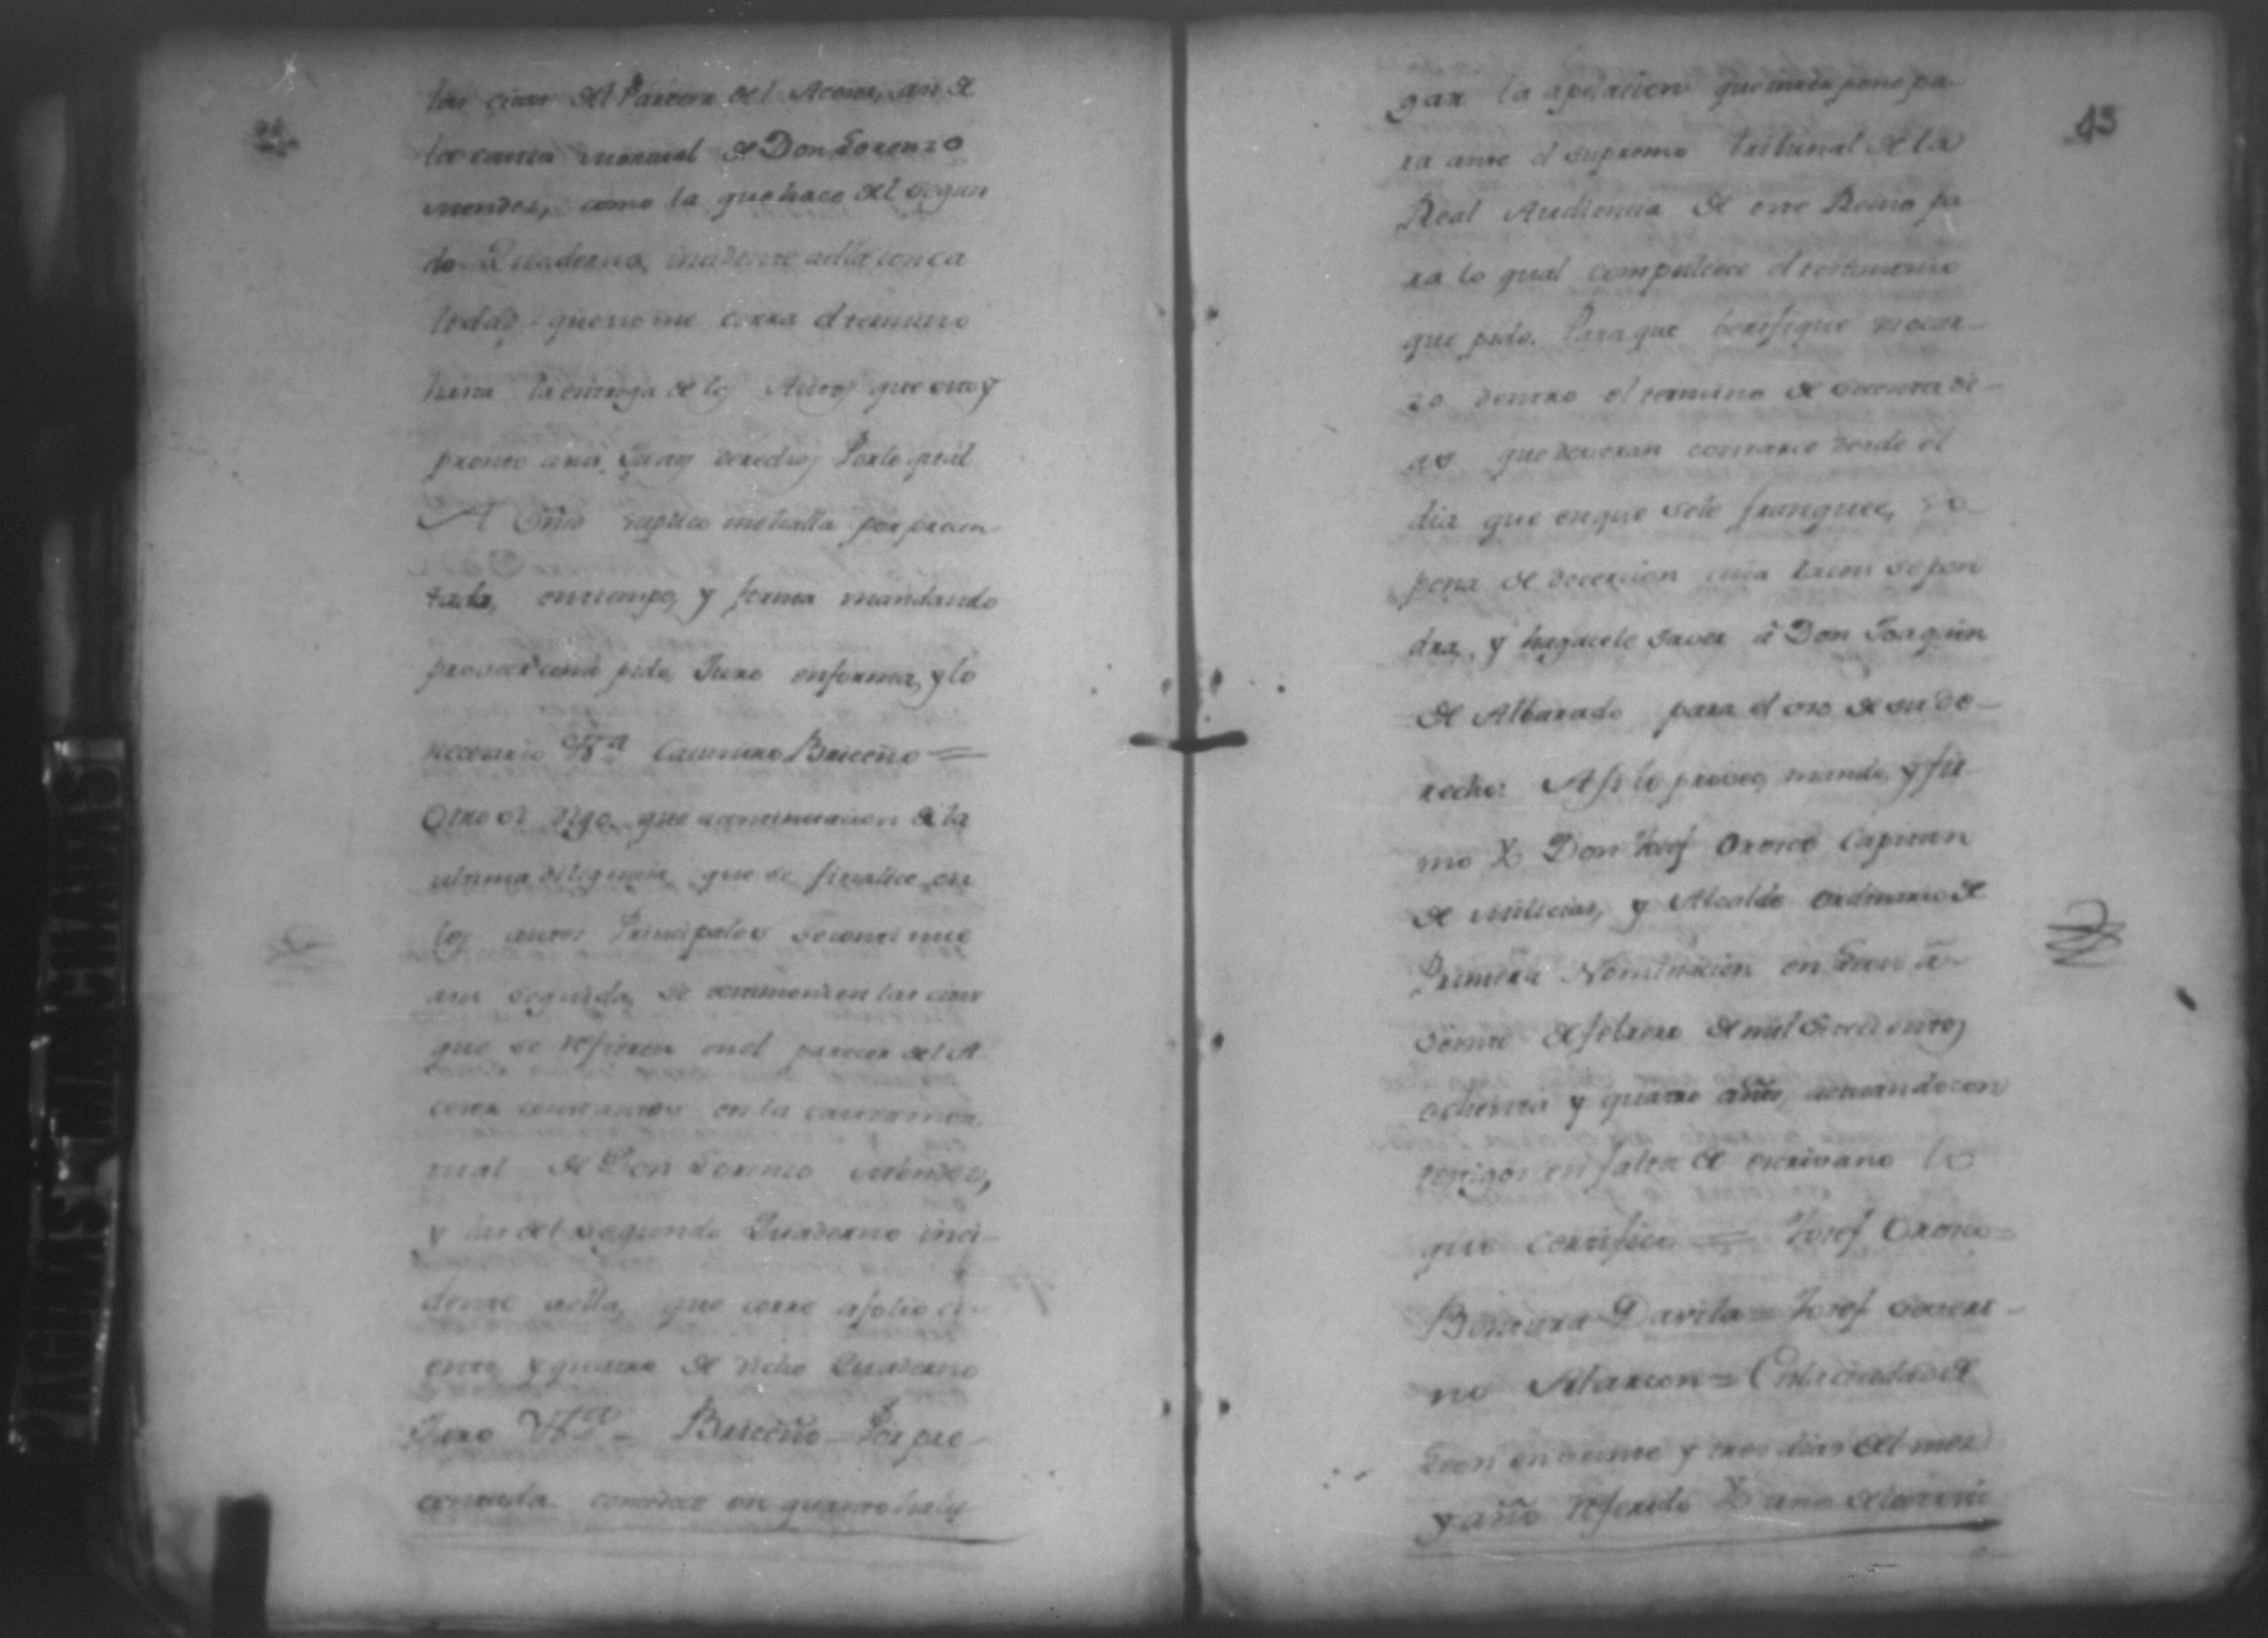 las citas del Parecer del Acesor, asi de
la causa mortual de Don Lorenzo
Mendes, como la que hace del segun
do Quaderno, insidente aella con ca
lidad que no me corra el termino
hasta la entrega de los Autos que estoy
pronto asus Juстos derechos Por lo qual
A Vmd suplico me halla por presen
tado, en tiempo, y forma mandando
proveer como pido, Juro en forma, y lo
necesario Vtta Casimiro Briceño =
Otro si digo que acontinuacion de la
ultima diligencia que se finalice en
los autos Principales se continue
asu seguida, se testimonien las citas
que se refieren en el parecer del A
cesor constantes en la causa mor
tual de Don Lorenzo Mendes,
y las del segundo Quaderno inci-
dente aella, que corre afolio ci-
ento y quatro de dicho Quaderno
Juro Vtta - Briceño - Por pre-
centada. concedece en quanto halu
gar la apelacion que interpone pa-
ra ante el supremo tribunal de la
Real Audiencia de este Reino pa
ra lo qual compulcece el testimonio
que pide. Para que berifique mocar-
zo dentro el termino de secenta di-
as que deveran contarce desde el
dia que en que sele franquee, so
pena de decercion cuia razon se pon
dra, y hagacele saver â Don Joaquin
de Albarado para el uso de su de-
recho: Assi lo proveo, mando, y fir
mo Yo Don Josef Orosco Capitan
de Milicias, y Alcalde ordinario de
Primera Nominacion en Leon â
veinte de febrero de mil setecientos
ochenta y quatro años, actuando con
testigos en falta de escrivano lo
que certifico = Josef Orosco =
Bentura Davila = Josef Severi-
no Alarcon = En la ciudad de
Leon en veinte y tres dias del mes
y año referido Yo
43